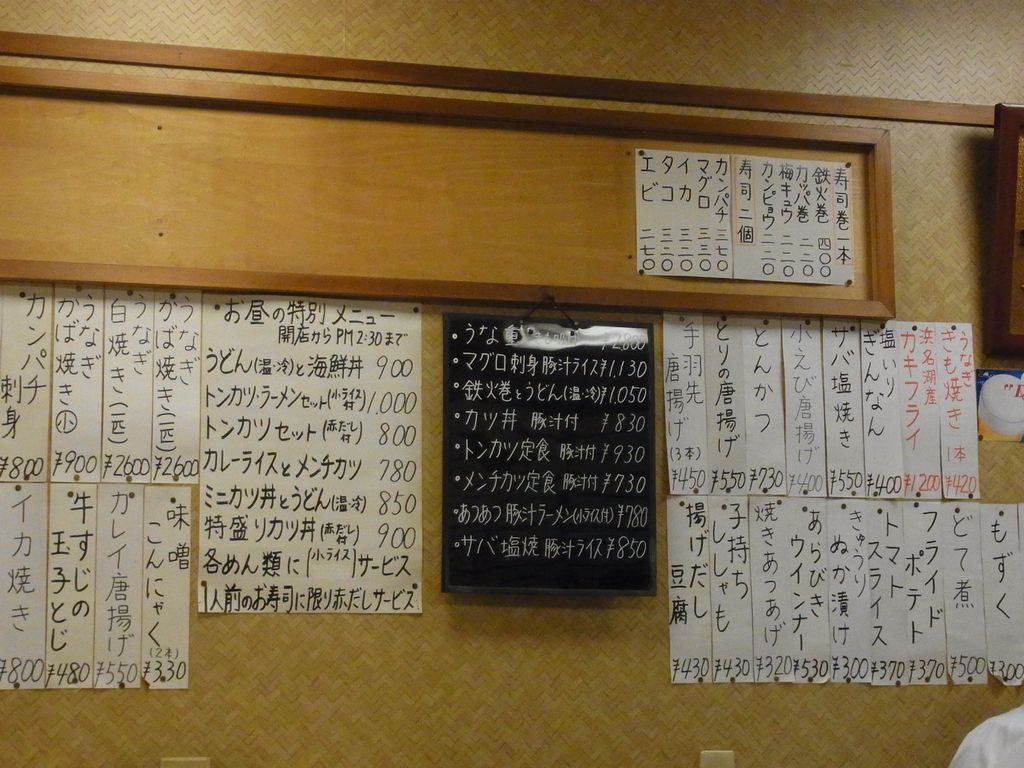 寿司巻一本
鉄火巻 四〇〇
カッパ巻 二一〇
梅キュウ 二二〇
カンピョウ 二一〇
寿司二個
カンパチ 三七〇
マグロ 三三〇
イカ 三二〇
タコ 三二〇
エビ 二七〇
うなぎ かば焼き(二匹) ¥2600
うなぎ 白焼き(二匹) ¥2600
うなぎ かば焼き小 ¥900
カンパチ刺身 ¥800
味噌こんにゃく(2本) ¥330
カレイ唐揚げ ¥550
牛すじの玉子とじ ¥480
イカ焼き ¥800
お昼の特別メニュー
開店からPM2:30まで
うどん(温・冷)と海鮮丼 900
トンカツ・ラーメンセット(小ライス付) 1,000
トンカツセット(赤だし付) 800
カレーライスとメンチカツ 780
ミニカツ丼とうどん(温・冷) 850
特盛りカツ丼(赤だし付) 900
各めん類に(小ライス)サービス
1人前のお寿司に限り赤だしサービス
・うな重
・マグロ刺身 豚汁ライス ¥1,130
・鉄火巻とうどん(温・冷) ¥1,050
・カツ丼 豚汁付 ¥830
・トンカツ定食 豚汁付 ¥930
・メンチカツ定食 豚汁付 ¥730
・あつあつ豚汁ラーメン(小ライス付) ¥780
・サバ塩焼 豚汁ライス ¥850
うなぎ きも焼き 1本 ¥420
浜名湖産 カキフライ ¥1,200
塩いり ぎんなん ¥400
サバ塩焼き ¥550
小えび唐揚げ ¥400
とんかつ ¥730
とりの唐揚げ ¥550
手羽先唐揚げ(3本) ¥450
もずく ¥300
どて煮 ¥500
フライドポテト ¥370
トマトスライス ¥370
きゅうりぬか漬け ¥300
あらびきウインナー ¥530
焼きあつあげ ¥320
子持ちししゃも ¥430
揚げだし豆腐 ¥430